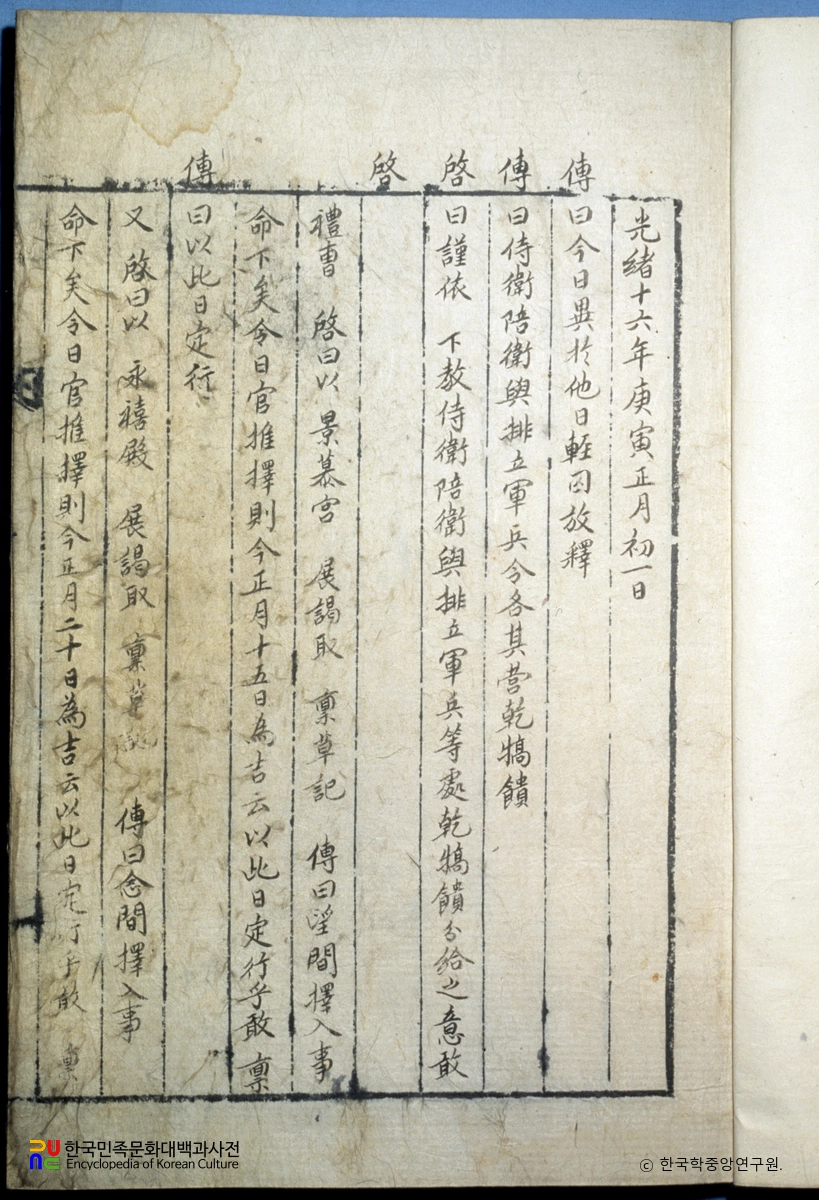 光緖十六年庚寅正月初一日
傳曰今日異於他日輕囚放釋
傳曰侍衛陪衛與排立軍兵令各其營乾犒饋
啓曰謹依 下敎侍衛陪衛與排立軍兵等處乾犒饋分給之意敢
啓
禮曹 啓曰以 景慕宮 展謁取 稟草記 傳曰望間擇入事
命下矣令日官推擇則今正月十五日爲吉云以此日定行乎敢 稟
傳曰以此日定行
又 啓曰以 永禧殿 展謁取 稟草記 傳曰念間擇入事
命下矣令日官推擇則今正月二十日爲吉云以此日定行乎敢 稟
한국민족문화대백과사전
Encyclopedia of Korean Culture
© 한국학중앙연구원.